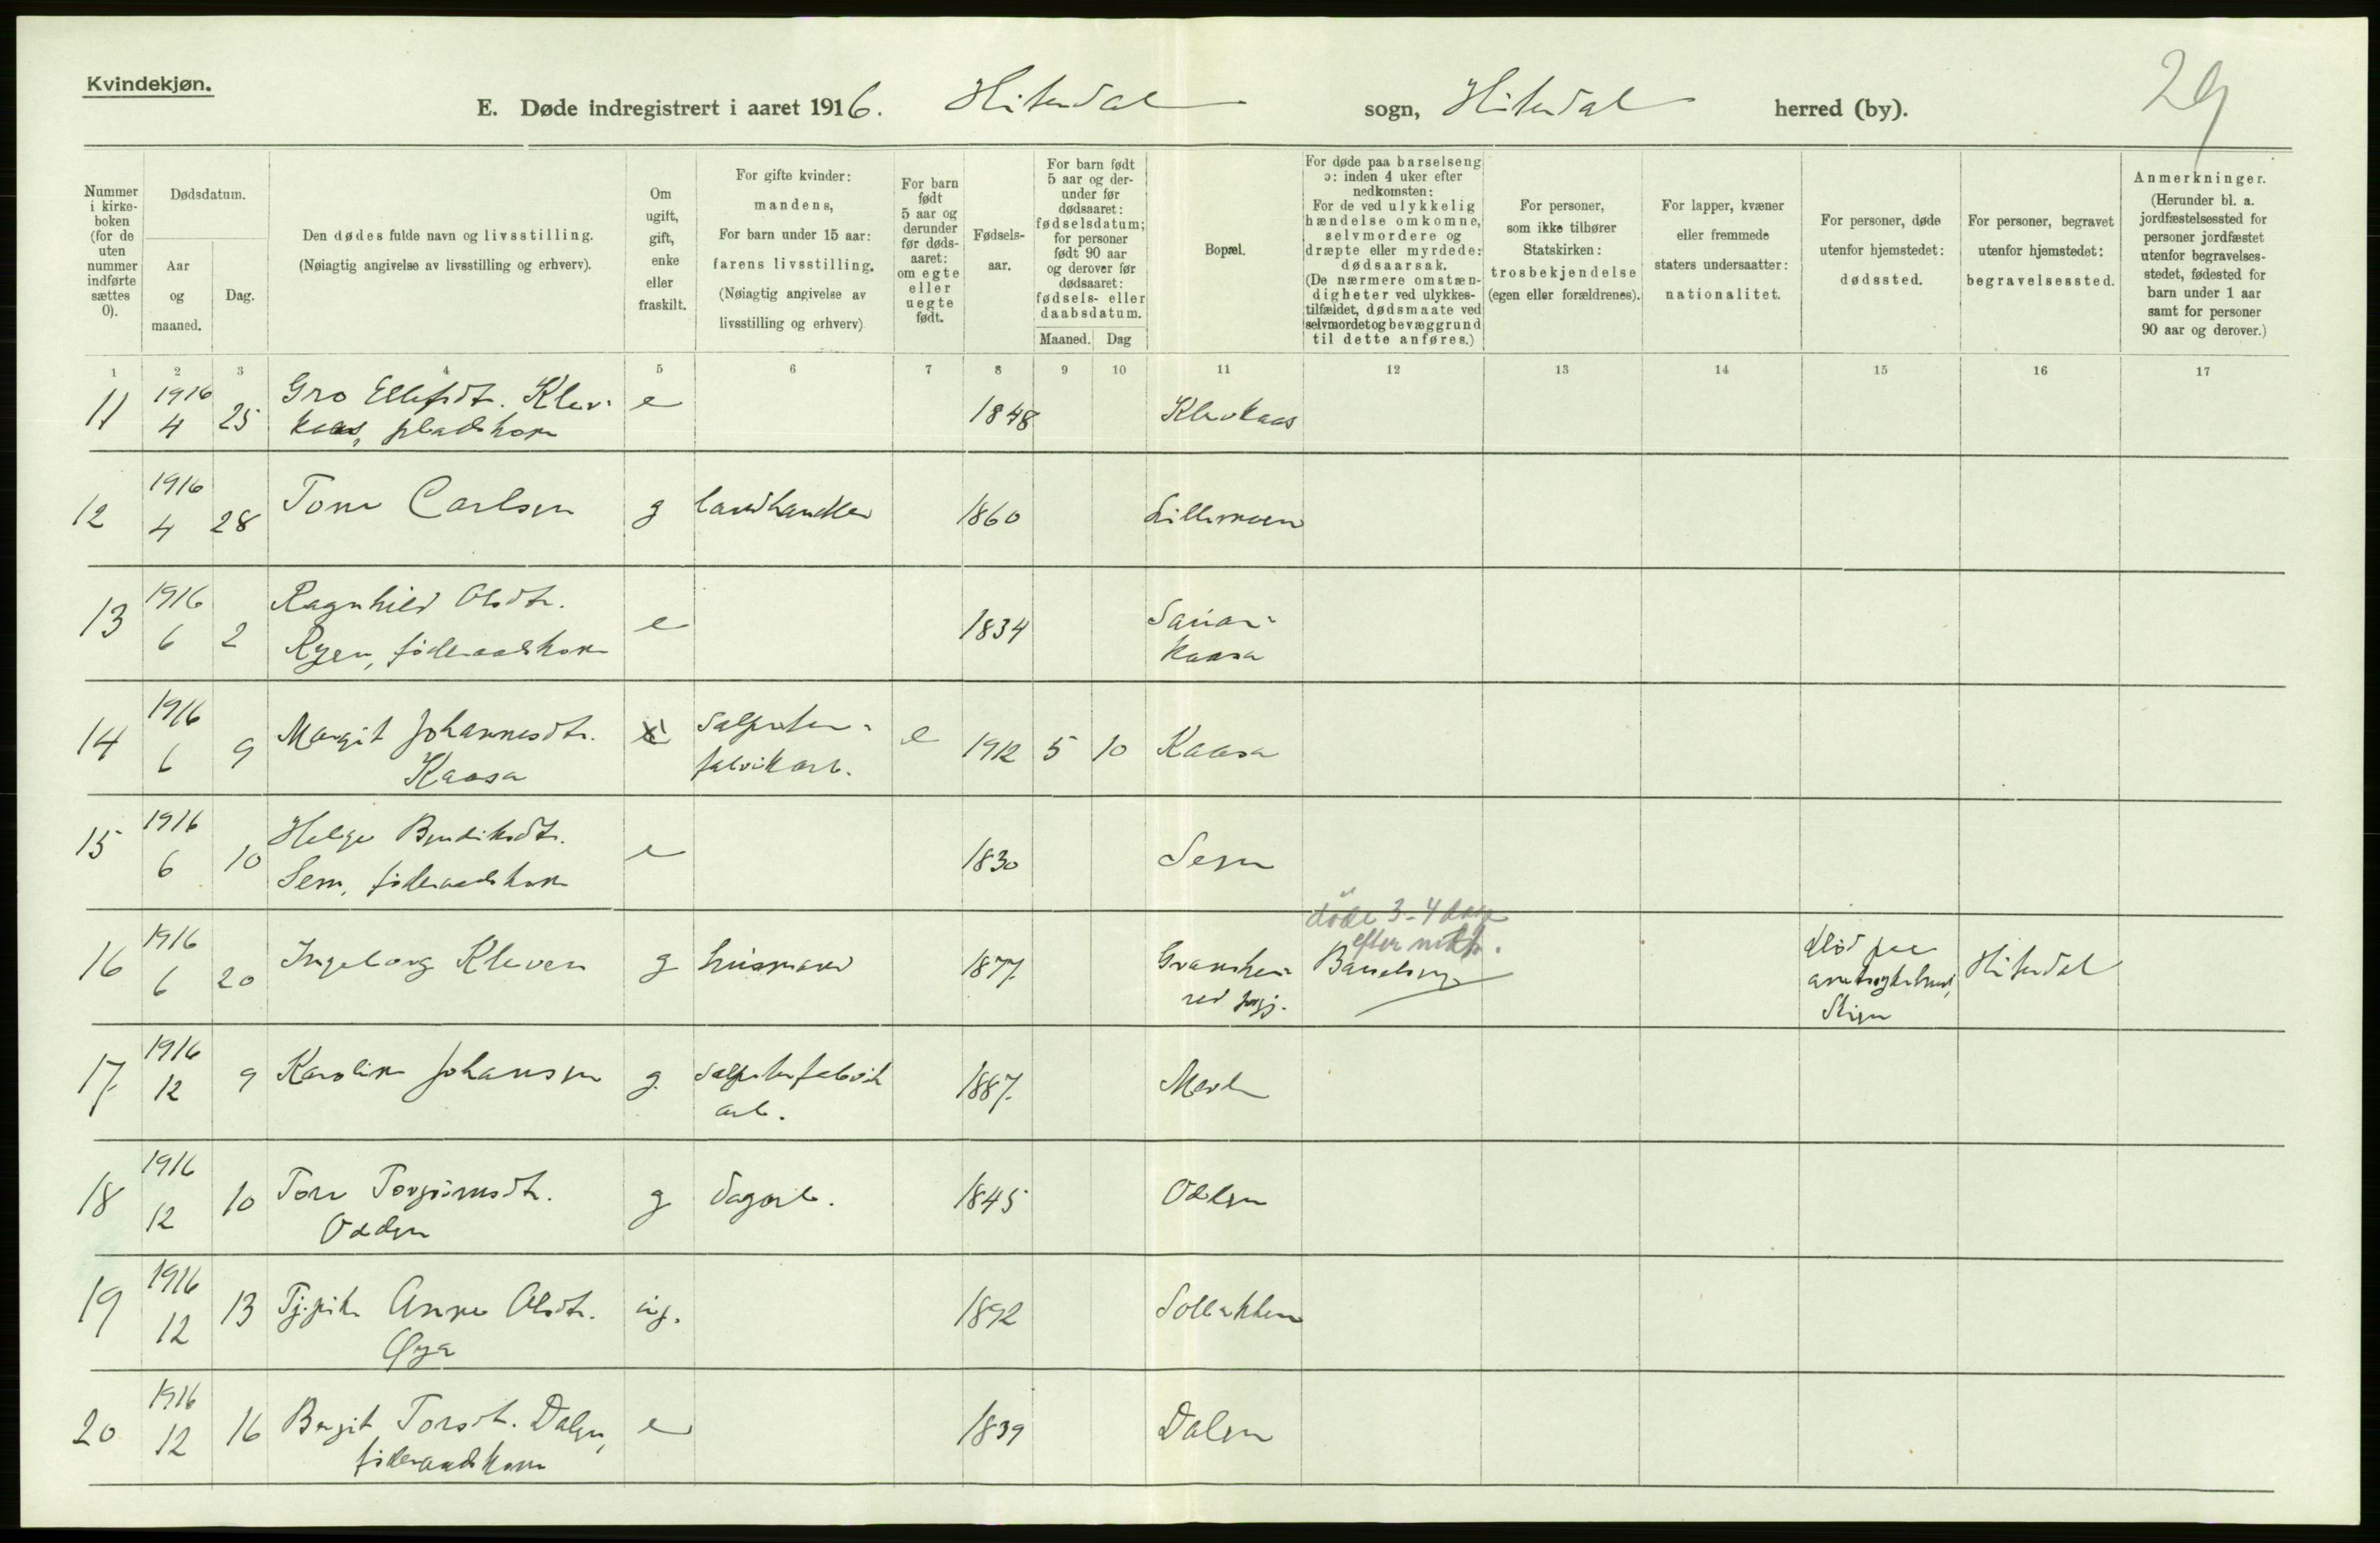 Kvindekjøn.
29
E. Døde indregistrert i aaret 1916. Hiterdal sogn, Hiterdal herred (by).
Nummer i kirke-boken (for de uten nummer indførte sættes 0).
Dødsdatum.
Aar og maaned.
Dag.
Den dødes fulde navn og livsstilling.
(Nøiagtig angivelse av livsstilling og erhverv).
Om ugift, gift, enke eller fraskilt.
For gifte kvinder: mandens,
For barn under 15 aar: farens livsstilling.
(Nøiagtig angivelse av livsstilling og erhverv)
For barn født 5 aar og derunder før døds-aaret: om egte eller uegte født.
Fødsels-aar.
For barn født 5 aar og der-under før dødsaaret: fødselsdatum; for personer født 90 aar og derover før dødsaaret: fødsels- eller daabsdatum.
Maaned. Dag
Bopæl.
For døde paa barselseng ɔ: inden 4 uker efter nedkomsten:
For de ved ulykkelig hændelse omkomne, selvmordere og dræpte eller myrdede: dødsaarsak.
(De nærmere omstæn-digheter ved ulykkes-tilfældet, dødsmaate ved selvmordet og bevæggrund til dette anføres.)
For personer, som ikke tilhører Statskirken: trosbekjendelse (egen eller forældrenes).
For lapper, kvæner eller fremmede staters undersaatter: nationalitet.
For personer, døde utenfor hjemstedet: dødssted.
For personer, begravet utenfor hjemstedet: begravelsessted.
Anmerkninger.
(Herunder bl. a. jordfæstelsessted for personer jordfæstet utenfor begravelses-stedet, fødested for barn under 1 aar samt for personer 90 aar og derover.)
1 2 3 4 5 6 7 8 9 10 11 12 13 14 15 16 17
11 1916 4 25 Gro Ellefsdt. Klev- e 1848 Klevkaas
kaas, pladskone
12 1916 4 28 Tone Carlsen g landhandler 1860 Lillemoen
13 1916 6 2 Ragnhild Olsdtr. e 1834 Sauar-
Ryen, føderaadskone kaasa
14 1916 6 9 Margit Johannesdtr. salpeter- e 1912 5 10 Kaasa
Kaasa fabrikarb.
15 1916 6 10 Helge Bendiksdtr. e 1830 Sem
Sem, føderaadskone
døde 3-4 dage
efter
16 1916 6 20 Ingeborg Kleven g husmand 1877. Gransher- Barselseng død paa Hiterdal
red pgj. amtssykehuset,
Skien
17. 1916 12 9 Karoline Johansen g. salpeterfabrik 1887. Mæla
arb.
18 1916 12 10 Tone Torgrimsdtr. g dagarb. 1845 Odden
Odden
19 1916 12 13 Tj.pike Anne Olsdtr. ug. 1892 Solbakken
Øya
20 1916 12 16 Bergit Torsdt. Dalen, e 1839 Dalen
føderaadskone